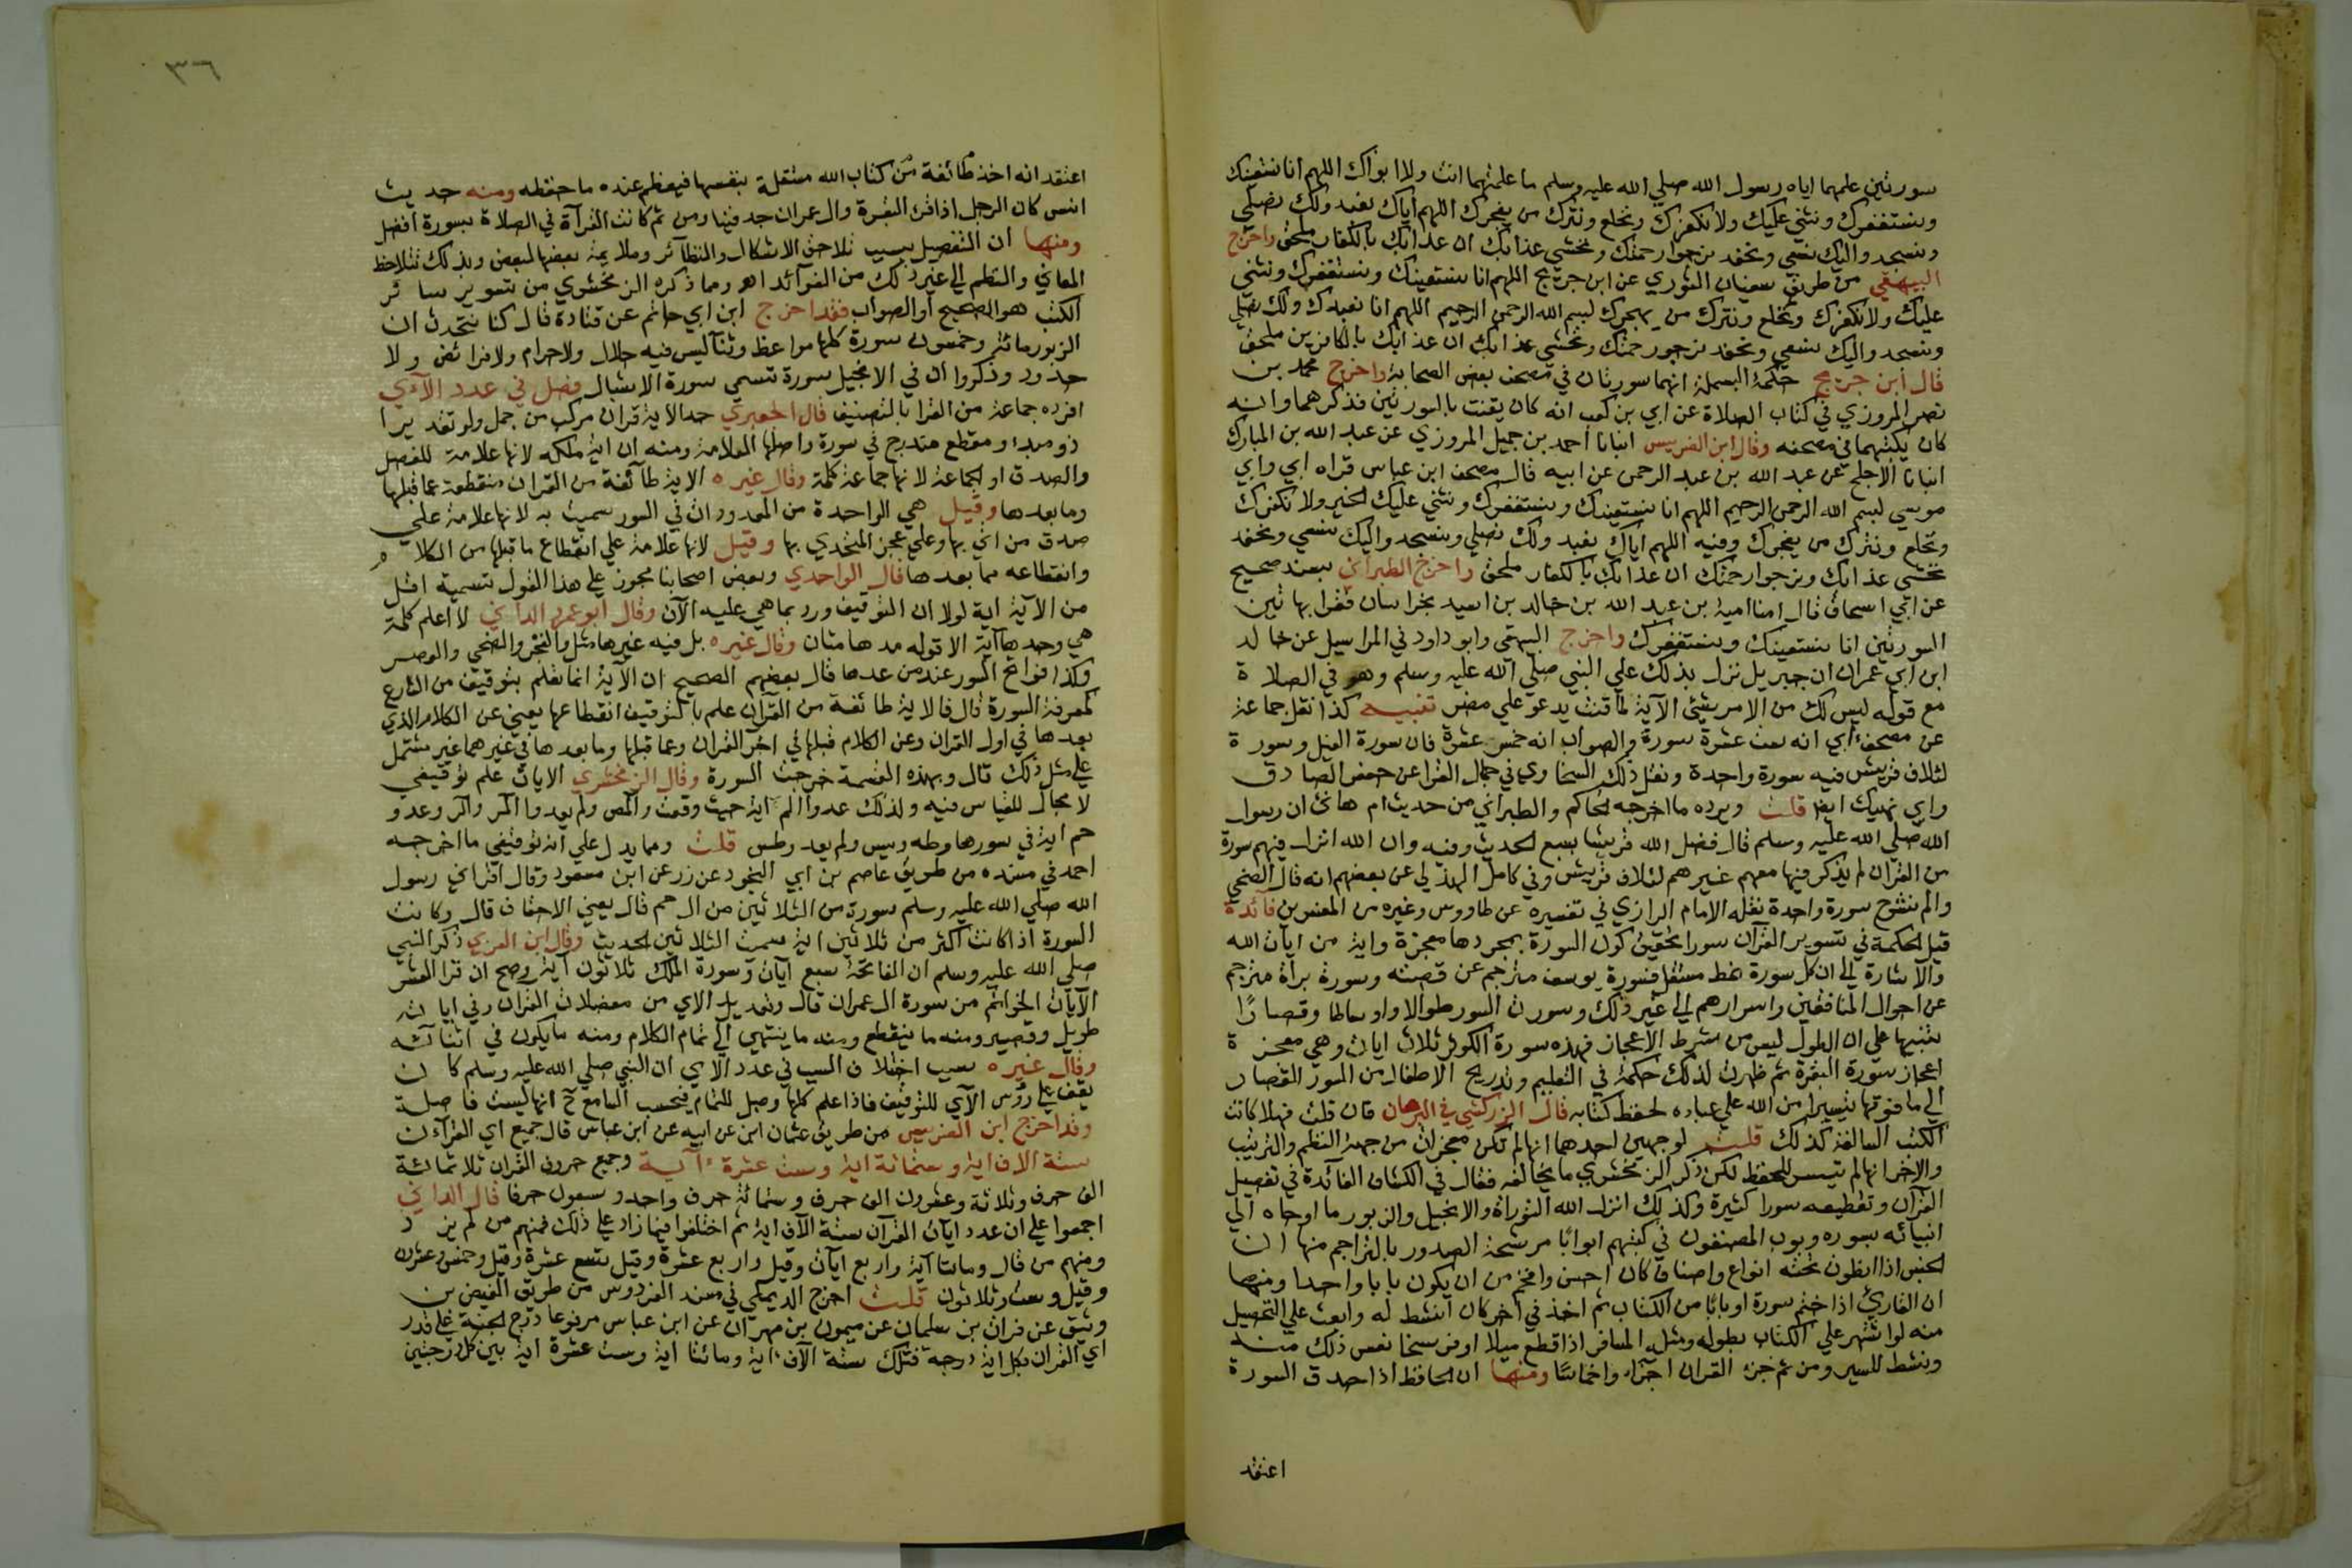 سورتين علمهما اياه رسول الله صلي الله عليه وسلم ما علمتهما انت ولا ابواك اللهم انا نستعينك
ونستغفرك ونثني عليك ولا نكفرك ونخلع ونترك من يفجرك اللهم اياك نعبد ولك نصلي
ونسجد واليك نسعي ونحفد نرجوا رحمتك ونخشي عذابك ان عذابك بالكفار ملحق واخرج
البيهقي من طريق سفيان الثوري عن ابن جريج اللهم انا نستعينك ونستغفرك ونثني
عليك ولا نكفرك ونخلع ونترك من يهجرك لبسم الله الرحمن الرحيم اللهم انا نعبدك ولك نصلي
ونسجد واليك نسعي ونحفد نرجور حمتك ونخشي عذابك ان عذابك بالكافرين ملحق
قال ابن جريج حكمة البسملة انهما سورتان في مصحف بعض الصحابة واخرج محمد بن
نصر المروزي في كتاب الصلاة عن ابي بن كعب انه كان يقنت بالسورتين فذكرهما وانه
كان يكتبهما في مصحفه وقال ابن الضريس انبانا احمد بن جميل المروزي عن عبد الله بن المبارك
انبانا الاجلح عن عبد الله بن عبد الرحمن عن ابيه قال مصحف ابن عباس قراه ابي وابي
موسي لبسم الله الرحمن الرحيم اللهم انا نستعينك ونستغفرك ونثني عليك الخير ولا نكفرك
ونخلع ونترك من يفجرك وفيه اللهم اياك نعبد ولك نصلي ونسجد واليك نسعي ونحفد
نخشي عذابك ونرجوا رحمتك ان عذابك بالكفار ملحق واخرج الطبراني بسند صحيح
عن ابي اسحاق قال امنا امية بن عبد الله بن خالد بن اسيد بخراسان فقرا بهاتين
السورتين انا نستعينك ونستغفرك واخرج البيهقي وابو داود في المراسيل عن خالد
ابن ابي عمران ان جبريل نزل بذلك علي النبي صلي الله عليه وسلم وهو في الصلاة
مع قوله ليس لك من الامر شيئ الآية لما قنت يدعو علي مضر تنبيه كذا نقل جماعة
عن مصحف أبي انه ست عشرة سورة والصواب انه خمس عشرة فان سورة الفيل وسورة
لئلاف قريش فيه سورة واحدة ونقل ذلك السخاوي في جمال القرا عن جعفر الصادق
وابي نهيك ايضا قلت ويرده ما اخرجه الحاكم والطبراني من حديث ام هانئ ان رسول
الله صلي الله عليه وسلم قال فضل الله قريشا بسبع الحديث وفيه وان الله انزل فيهم سورة
من القران لم يذكر فيها معهم غيرهم لئلاف قريش وفي كامل الهذلي عن بعضهم انه قال الضحي
والم نشرح سورة واحدة نقله الامام الرازي في تفسيره عن طاووس وغيره من المفسرين فائدة
قيل الحكمة في تسوير القرآن سورا تحقيق كون السورة بمجردها معجزة واية من ايات الله
والاشارة الي ان كل سورة نمط مستقل فسورة يوسف مترجم عن قصته وسورة برأة مترجم
عن احوال المنافقين واسرارهم الي غير ذلك وسورت السور طوالا واوساطا وقصارًا
تنبيها علي ان الطول ليس من شرط الاعجاز فهذه سورة الكوثر ثلاث ايات وهي معجزة
اعجاز سورة البقرة ثم ظهرت لذلك حكمة في التعليم وتدريج الاطفال من السور القصار
الي ما فوقها تيسيرا من الله علي عباده لحفظ كتابه قال الزركشي في البرهان فان قلت فهلا كانت
الكتب السالفة كذلك قلت لوجهين احدهما انها لم تكن معجزات من جهة النظم والترتيب
والاخر انها لم تيسر للحفظ لكن ذكر الزمخشري ما يخالفه فقال في الكشاف الفائدة في تفصيل
القرآن وتقطيعه سورا كثيرة وكذلك انزل الله التوراة والانجيل والزبور ما اوحاه الي
انبيائه سوره وبوب المصنفون في كتبهم ابوابًا مرشحة الصدور بالتراجم منها ان
الجنس اذا انطوت تحته انواع واصناف كان احسن وافخم من ان يكون بابا واحدا ومنها
ان القارئ اذا ختم سورة او بابًا من الكتاب ثم اخذ في اخر كان انشط له وابعث علي التحصيل
منه لو استمر علي الكتاب بطوله ومثله المسافر اذا قطع ميلا او فرسخا نفس ذلك منه
ونشط للسير ومن ثم جزء القران اجزاء واخماسًا ومنها ان الحافظ اذا حدق السورة
اعتقد
٣٦
اعتقد انه اخذ طائفة من كتاب الله مستقلة بنفسها فيعظم عنده ما حفظه ومنه حديث
انس كان الرجل اذا قرئ البقرة وال عمران جد فينا ومن ثم كانت القرآة في الصلاة بسورة أفضل
ومنها ان التفصيل بسبب تلاحق الاشكال والنظائر وملايمة بعضها لبعض وبذلك تتلاحظ
المعاني والنظم الي غير ذلك من الفوائد اه وما ذكره الزمخشري من تسوير سائر
الكتب هو الصحيح او الصواب فقد اخرج ابن ابي حاتم عن قتادة قال كنا نتحدث ان
الزبور مائة وخمسون سورة كلها مواعظ وثنآ ليس فيه حلال ولا حرام ولا فرائض ولا
حدود وذكروا ان في الانجيل سورة تسمي سورة الامثال فصل في عدد الآي
افرده جماعة من القرا بالتصنيف قال الجعبري حد الاية قران مركب من جمل ولو تقديرا
ذو مبدا ومقطع مندرج في سورة واصلها العلامة ومنه ان اية ملكه لانها علامة للفصل
والصدق او الجماعة لانها جماعة كلمة وقال غيره الاية طائفة من القران منقطعة عما قبلها
وما بعدها وقيل هي الواحدة من المعدودات في السور سميت به لانها علامة علي
صدق من اتي بها وعلي عجز المتحدي بها وقيل لانها علامة علي انقطاع ما قبلها من الكلام
وانقطاعه مما بعدها قال الواحدي وبعض اصحابنا يجوز علي هذا القول تسمية اقل
من الآية اية لولا ان التوقيف ورد بما هي عليه الآن وقال ابو عمرو الداني لا اعلم كلمة
هي وحدها آية الا قوله مدهامتان وقال غيره بل فيه غيرها مثل والفجر والضحي والعصر
وكذا فواتح السور عند من عدها قال بعضهم الصحيح ان الآية انما تعلم بتوقيف من الشارع
كمعرفة السورة قال فالاية طائفة من القرآن علم بالتوقيف انقطاعها يعني عن الكلام الذي
بعدها في اول القران وعن الكلام قبلها في آخر القران وعما قبلها وما بعدها في غيرهما غير مشتمل
علي مثل ذلك قال وبهذه القسمة خرجت السورة وقال الزمخشري الايات علم توقيفي
لا مجال للقياس فيه ولذلك عدوا الم اية حيث وقعت والمص ولم يعدوا المر والر وعدو
حم اية في سورها وطه ويس ولم يعد وطس قلت ومما يدل علي انه توقيفي ما اخرجه
احمد في مسنده من طريق عاصم بن ابي النجود عن زر عن ابن مسعود وقال اقراني رسول
الله صلي الله عليه وسلم سورة من الثلاثين من ال حم قال يعني الاحقاف قال وكانت
السورة اذا كانت اكثر من ثلاثين اية سميت الثلاثين الحديث وقال ابن العربي ذكر النبي
صلي الله عليه وسلم ان الفاتحة سبع آيات وسورة الملك ثلاثون آية وصح ان قرا العشر
الآيات الخواتم من سورة ال عمران قال وتعديل الاي من معضلات القران وفي اياته
طويل وقصير ومنه ما ينقطع ومنه ما ينتهي الي تمام الكلام ومنه ما يكون في اثنائه
وقال غيره سبب اختلاف السب في عدد الاي ان النبي صلي الله عليه وسلم كان
يقف علي رؤس الآي للتوقيف فاذا علم كلها وصل للتمام فيحسب السامع ح انها ليست فاصلة
وقد اخرج ابن الضريس من طريق عثمان ابن عن ابيه عن ابن عباس قال جميع اي القرآن
ستة الاف اية وستمائة اية وست عشرة آية وجميع حروف القران ثلاثمائة
الف حرف وثلاثة وعشرون الف حرف وستمائة حرف واحد وسبعون حرفا قال الداني
اجمعوا علي ان عدد ايات القرآن ستة الآف اية ثم اختلفوا فيما زاد علي ذلك فمنهم من لم يزد
ومنهم من قال ومائتا آية واربع ايات وقيل واربع عشرة وقيل تسع عشرة وقيل وخمس وعشرن
وقيل وست وثلاثون قلت اخرج الديملي في مسند الفردوس من طريق الفيض بن
وثيق عن فرات بن سلمان عن ميمون بن مهران عن ابن عباس مرفوعا درج الجنة علي قدر
اي القران بكل اية درجة فتلك ستة الآف اية ومائتا اية وست عشرة اية بين كل درجتين